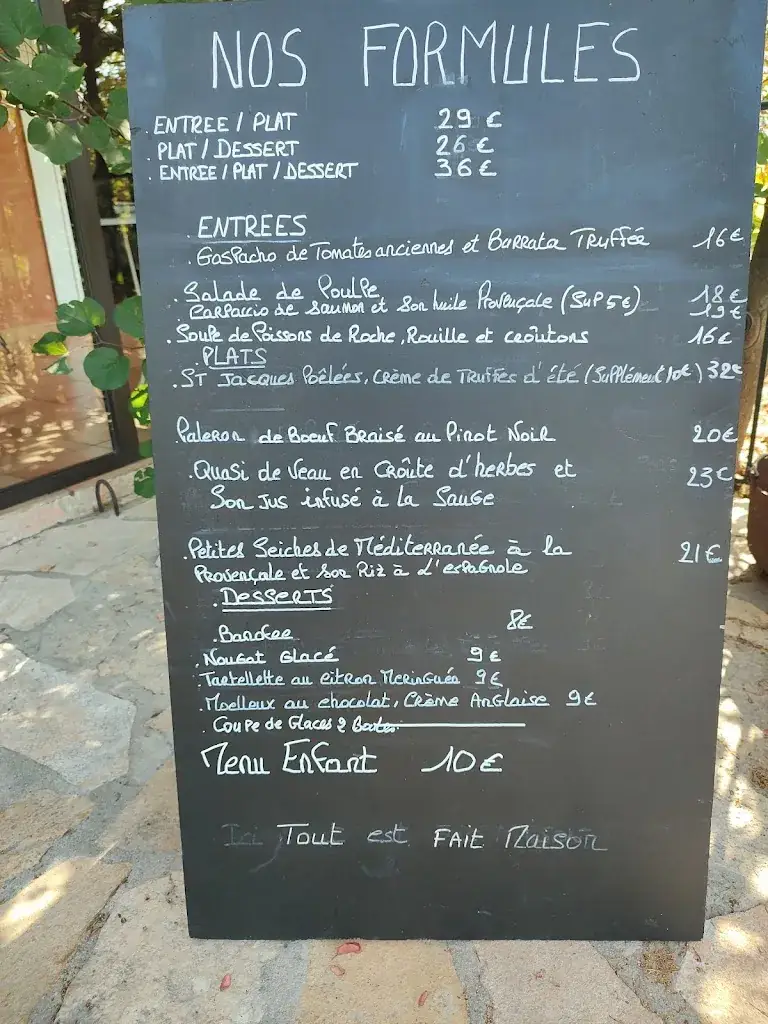 NOS FORMULES
. ENTREE / PLAT 29 €
. PLAT / DESSERT 26 €
. ENTREE / PLAT / DESSERT 36 €
. ENTREES
. Gaspacho de Tomates anciennes et Burrata Truffée 16€
. Salade de Poulpe 18€
. Carpaccio de Saumon et Son huile Provençale (SuP 5€) 19€
. Soupe de Poissons de Roche, Rouille et croûtons 16€
. PLATS
. ST Jacques Poêlées, Crème de Truffes d'été (Supplément 10€) 32€
Paleron de Boeuf Braisé au Pinot Noir 20€
. Quasi de Veau en Croûte d'herbes et 23€
Son Jus infusé à la Sauge
. Petites Seiches de Méditerranée à la 21€
Provençale et Son Riz à l'espagnole
. Desserts
. Banofee 8€
. Nougat Glacé 9€
. Tartellette au citron Meringuée 9€
. Moelleux au chocolat, Crème Anglaise 9€
. Coupe de Glaces 2 Boules
Menu Enfant 10€
Ici Tout est Fait Maison